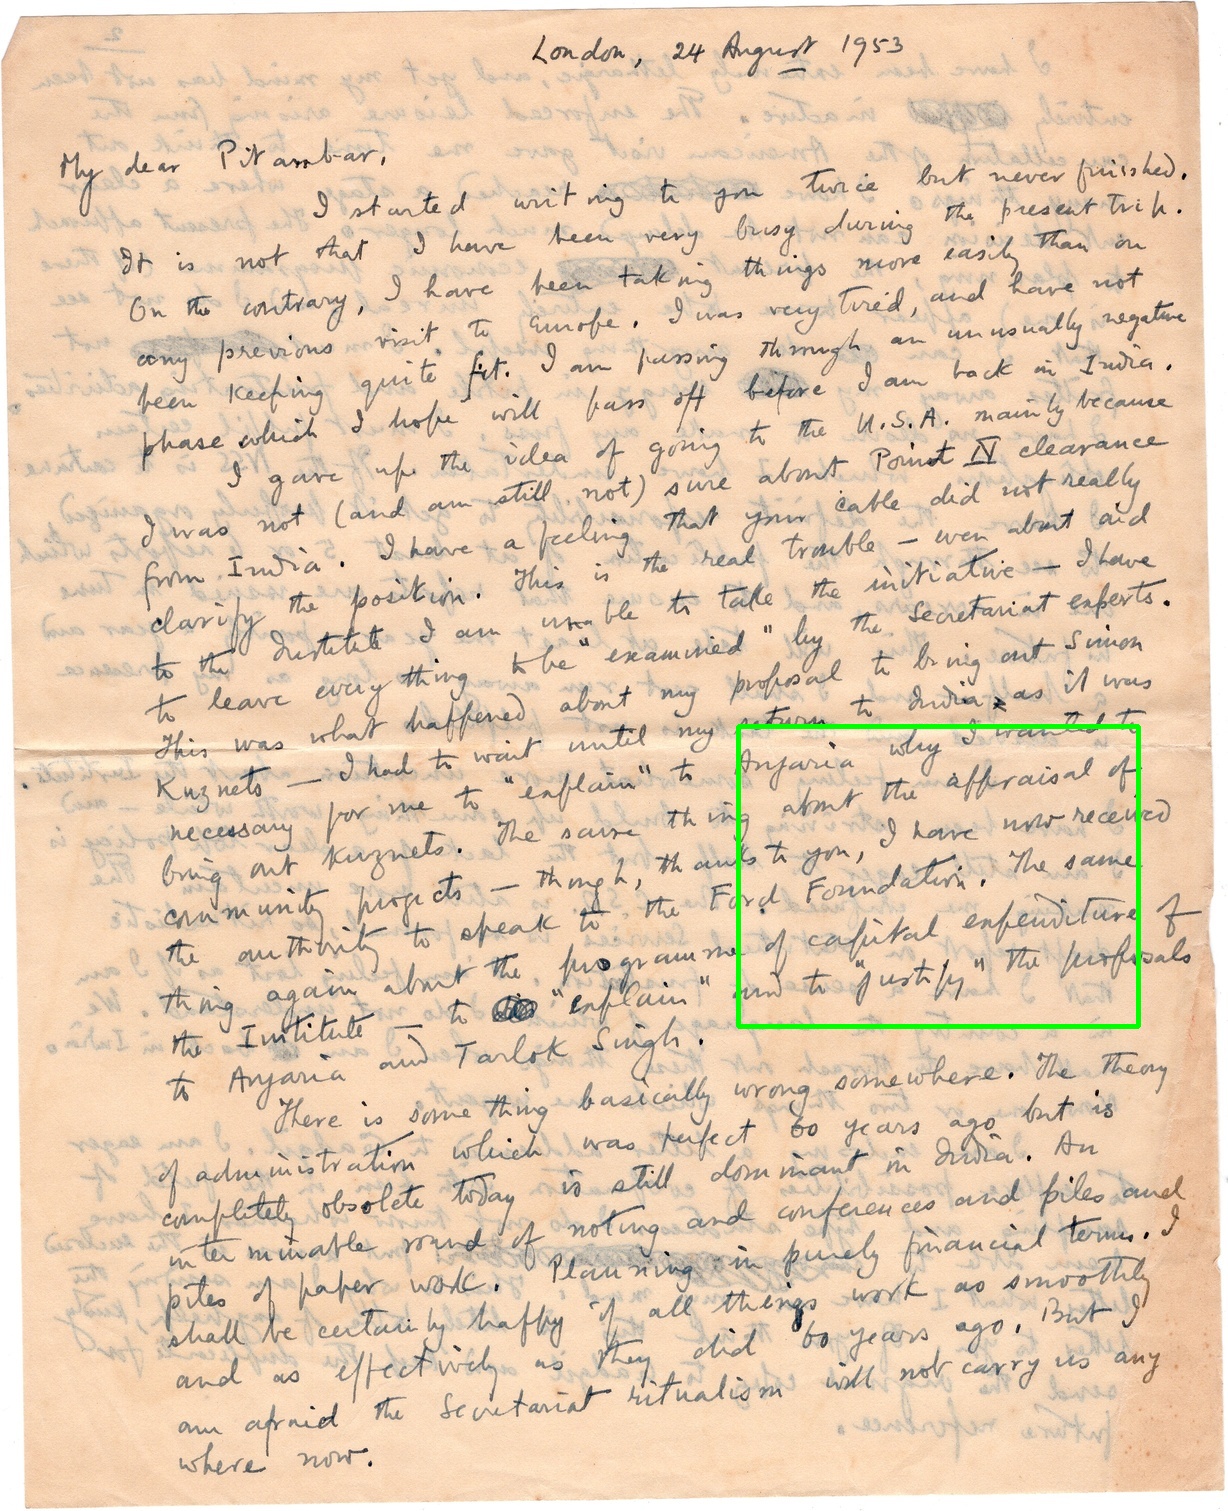 London, 24 August 1953
My dear Pitambar,
I started writing to you twice but never finished.
It is not that I have been very busy during the present trip.
On the contrary, I have been taking things more easily than on
any previous visit to Europe. I was very tired, and have not
been keeping quite fit. I am passing through an unusually negative
phase which I hope will pass off before I am back in India.
I gave up the idea of going to the U.S.A. mainly because
I was not (and am still not) sure about Point IV clearance
from India. I have a feeling that your cable did not really
clarify the position. This is the real trouble — even about aid
to the Institute I am unable to take the initiative — I have
to leave everything to be "examined" by the Secretariat experts.
This was what happened about my proposal to bring out Simon
Kuznets — I had to wait until my return to India, as it was
necessary for me to "explain" to Anjaria why I wanted to
bring out Kuznets. The same thing about the appraisal of
community projects — though, thanks to you, I have now received
the authority to speak to the Ford Foundation. The same
thing again about the programme of capital expenditure of
the Institute — to "explain" and to "justify" the proposals
to Anjaria and Tarlok Singh.
There is something basically wrong somewhere. The theory
of administration which was perfect 60 years ago but is
completely obsolete today is still dominant in India. An
interminable round of noting and conferences and piles and
piles of paper work. Planning in purely financial terms. I
shall be certainly happy if all things work as smoothly
and as effectively as they did 60 years ago. But I
am afraid the Secretariat ritualism will not carry us any
where now.